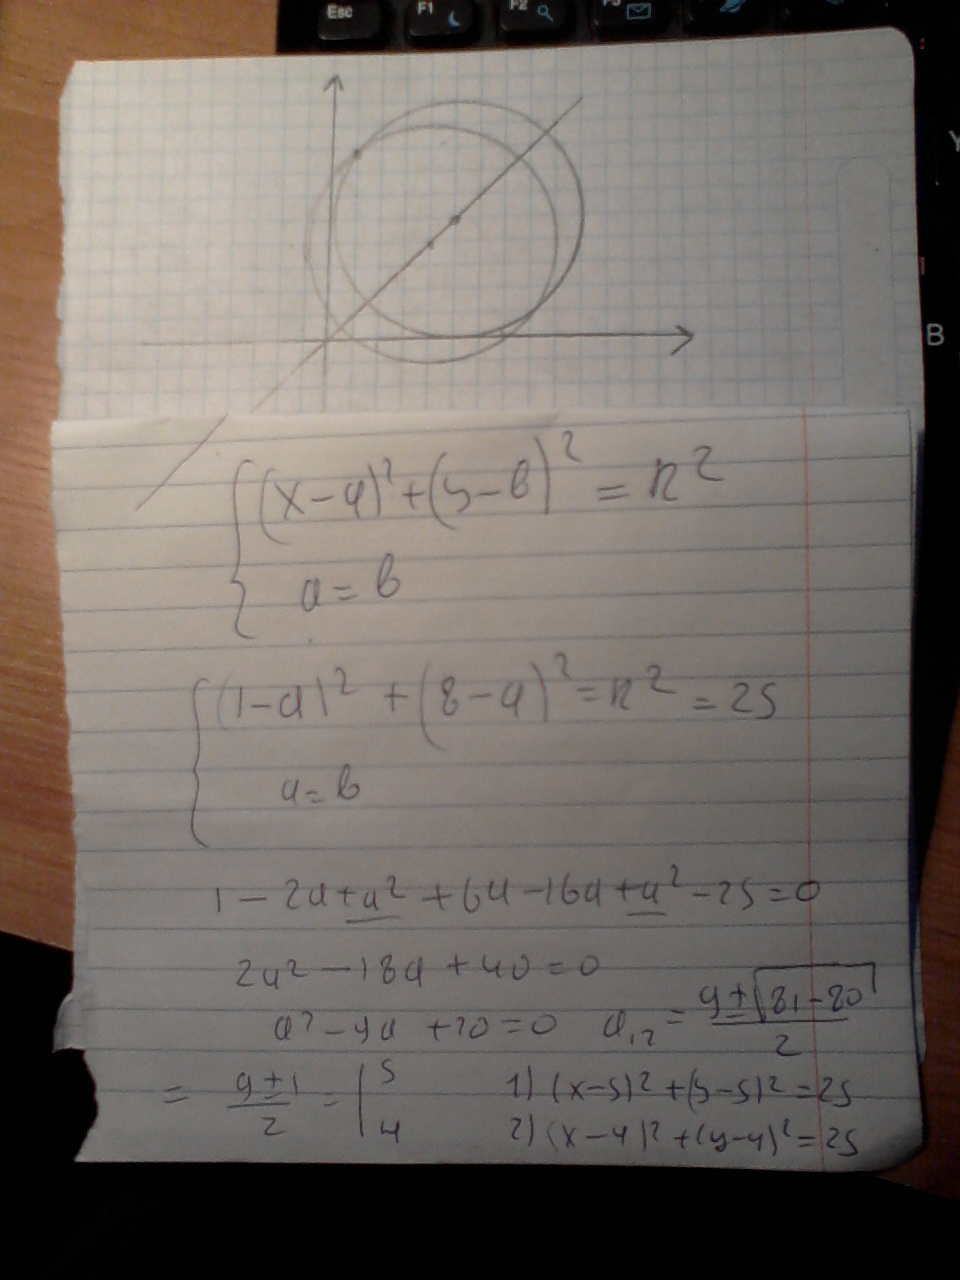 Esc F1 F2
Y
B
(x-a)² + (y-b)² = R²
a = b
(1-a)² + (8-a)² = R² = 25
a = b
1 - 2a + a² + 64 - 16a + a² - 25 = 0
2a² - 18a + 40 = 0
a² - 9a + 20 = 0 a₁,₂ = (9 ± √(81-80))/2
= (9 ± 1)/2 = | 5 1) (x-5)² + (y-5)² = 25
4 2) (x-4)² + (y-4)² = 25